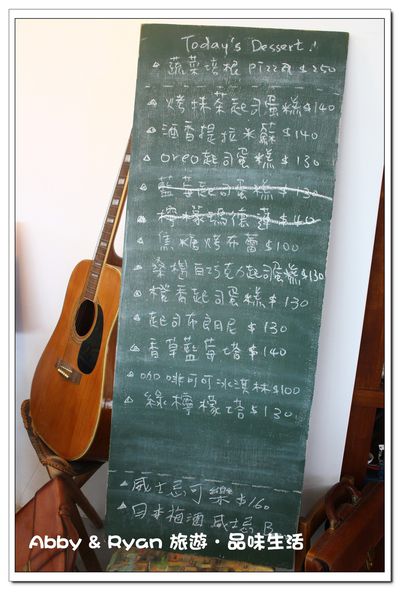 Today's Dessert!
蔬菜培根 pizza $250
烤抹茶起司蛋糕 $140
酒香提拉米蘇 $140
oreo起司蛋糕 $130
藍莓起司蛋糕 $130
檸檬瑪德蓮 $140
焦糖烤布蕾 $100
柔橙白巧克力起司蛋糕 $130
橙香起司蛋糕 $130
起司布朗尼 $130
香草藍莓塔 $140
咖啡可可冰淇淋 $100
綠檸檬塔 $130
威士忌可樂 $160
梅酒 威士忌 B
Abby & Ryan 旅遊・品味生活